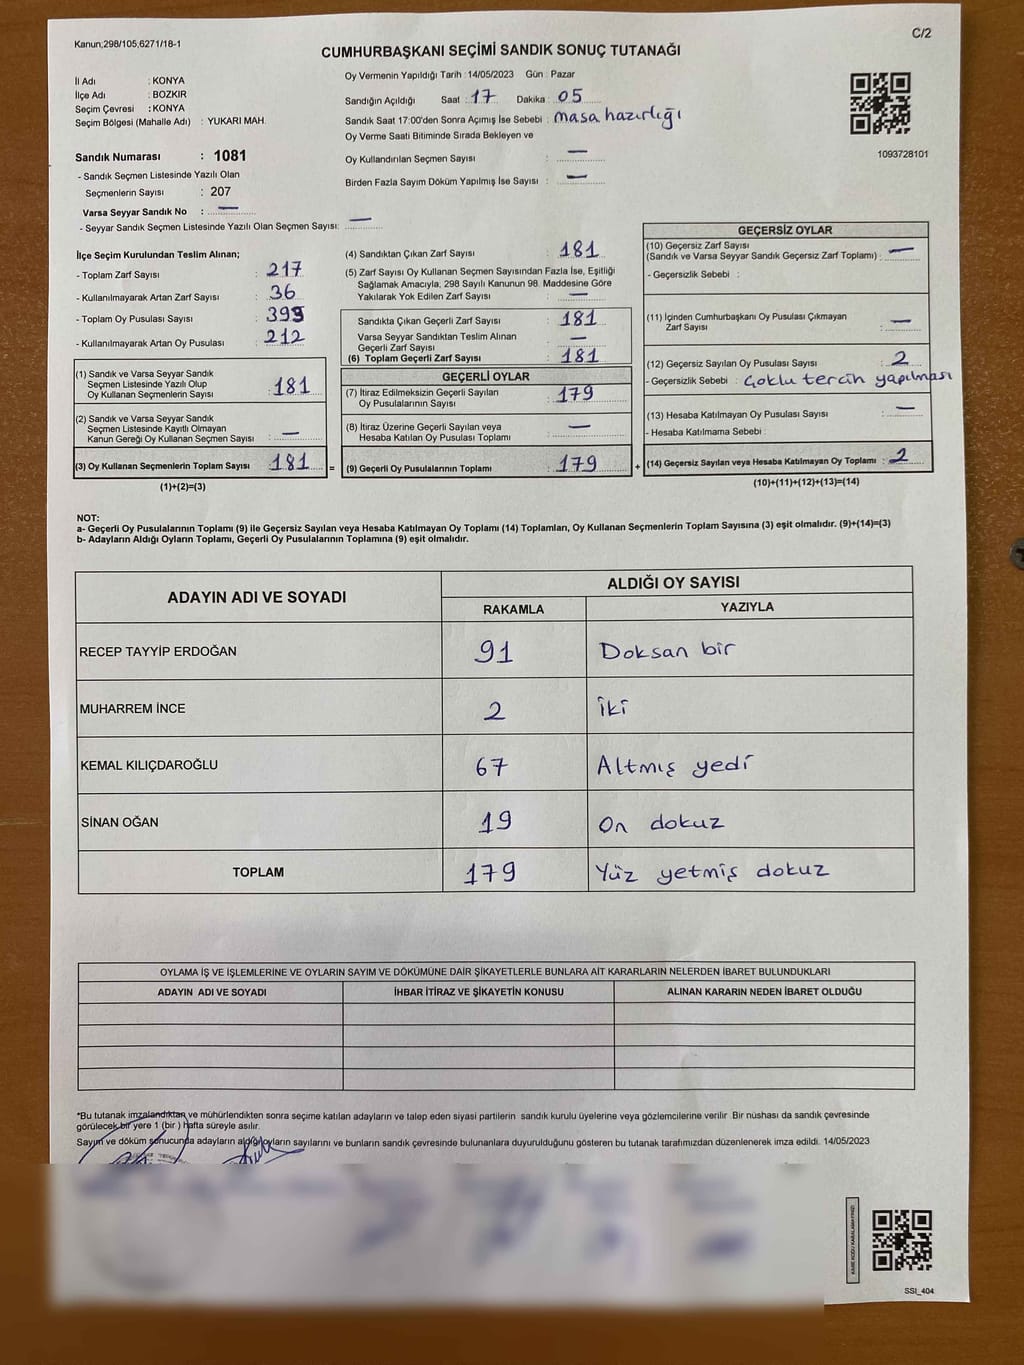 Kanun;298/105,6271/18-1
C/2
CUMHURBAŞKANI SEÇİMİ SANDIK SONUÇ TUTANAĞI
İl Adı : KONYA
İlçe Adı : BOZKIR
Seçim Çevresi : KONYA
Seçim Bölgesi (Mahalle Adı) : YUKARI MAH.
Sandık Numarası : 1081
- Sandık Seçmen Listesinde Yazılı Olan
Seçmenlerin Sayısı : 207
Varsa Seyyar Sandık No : —
- Seyyar Sandık Seçmen Listesinde Yazılı Olan Seçmen Sayısı: —
Oy Vermenin Yapıldığı Tarih : 14/05/2023 Gün : Pazar
Sandığın Açıldığı Saat : 17 Dakika : 05
Sandık Saat 17:00'den Sonra Açımış İse Sebebi : masa hazırlığı
Oy Verme Saati Bitiminde Sırada Bekleyen ve
Oy Kullandırılan Seçmen Sayısı : —
Birden Fazla Sayım Döküm Yapılmış İse Sayısı : —
1093728101
İlçe Seçim Kurulundan Teslim Alınan;
- Toplam Zarf Sayısı : 217
- Kullanılmayarak Artan Zarf Sayısı : 36
- Toplam Oy Pusulası Sayısı : 393
- Kullanılmayarak Artan Oy Pusulası : 212
(1) Sandık ve Varsa Seyyar Sandık
Seçmen Listesinde Yazılı Olup
Oy Kullanan Seçmenlerin Sayısı : 181
(2) Sandık ve Varsa Seyyar Sandık
Seçmen Listesinde Kayıtlı Olmayan
Kanun Gereği Oy Kullanan Seçmen Sayısı : —
(3) Oy Kullanan Seçmenlerin Toplam Sayısı : 181 =
(1)+(2)=(3)
(4) Sandıktan Çıkan Zarf Sayısı : 181
(5) Zarf Sayısı Oy Kullanan Seçmen Sayısından Fazla İse, Eşitliği
Sağlamak Amacıyla, 298 Sayılı Kanunun 98. Maddesine Göre
Yakılarak Yok Edilen Zarf Sayısı : —
Sandıkta Çıkan Geçerli Zarf Sayısı : 181
Varsa Seyyar Sandıktan Teslim Alınan
Geçerli Zarf Sayısı : —
(6) Toplam Geçerli Zarf Sayısı : 181
GEÇERLİ OYLAR
(7) İtiraz Edilmeksizin Geçerli Sayılan
Oy Pusulalarının Sayısı : 179
(8) İtiraz Üzerine Geçerli Sayılan veya
Hesaba Katılan Oy Pusulası Toplamı : —
(9) Geçerli Oy Pusulalarının Toplamı : 179 +
GEÇERSİZ OYLAR
(10) Geçersiz Zarf Sayısı
(Sandık ve Varsa Seyyar Sandık Geçersiz Zarf Toplamı) : —
- Geçersizlik Sebebi :
(11) İçinden Cumhurbaşkanı Oy Pusulası Çıkmayan
Zarf Sayısı : —
(12) Geçersiz Sayılan Oy Pusulası Sayısı : 2
- Geçersizlik Sebebi : Çoklu tercih yapılması
(13) Hesaba Katılmayan Oy Pusulası Sayısı : —
- Hesaba Katılmama Sebebi :
(14) Geçersiz Sayılan veya Hesaba Katılmayan Oy Toplamı : 2
(10)+(11)+(12)+(13)=(14)
NOT:
a- Geçerli Oy Pusulalarının Toplamı (9) ile Geçersiz Sayılan veya Hesaba Katılmayan Oy Toplamı (14) Toplamları, Oy Kullanan Seçmenlerin Toplam Sayısına (3) eşit olmalıdır. (9)+(14)=(3)
b- Adayların Aldığı Oyların Toplamı, Geçerli Oy Pusulalarının Toplamına (9) eşit olmalıdır.
ADAYIN ADI VE SOYADI
ALDIĞI OY SAYISI
RAKAMLA YAZIYLA
RECEP TAYYİP ERDOĞAN 91 Doksan bir
MUHARREM İNCE 2 İki
KEMAL KILIÇDAROĞLU 67 Altmış yedi
SİNAN OĞAN 19 On dokuz
TOPLAM 179 Yüz yetmiş dokuz
OYLAMA İŞ VE İŞLEMLERİNE VE OYLARIN SAYIM VE DÖKÜMÜNE DAİR ŞİKAYETLERLE BUNLARA AİT KARARLARIN NELERDEN İBARET BULUNDUKLARI
ADAYIN ADI VE SOYADI İHBAR İTİRAZ VE ŞİKAYETİN KONUSU ALINAN KARARIN NEDEN İBARET OLDUĞU
*Bu tutanak imzalandıktan ve mühürlendikten sonra seçime katılan adayların ve talep eden siyasi partilerin sandık kurulu üyelerine veya gözlemcilerine verilir. Bir nüshası da sandık çevresinde
görülecek bir yere 1 (bir ) hafta süreyle asılır.
Sayım ve döküm sonucunda adayların aldığı oyların sayılarını ve bunların sandık çevresinde bulunanlara duyurulduğunu gösteren bu tutanak tarafımızdan düzenlenerek imza edildi. 14/05/2023
SSI_404